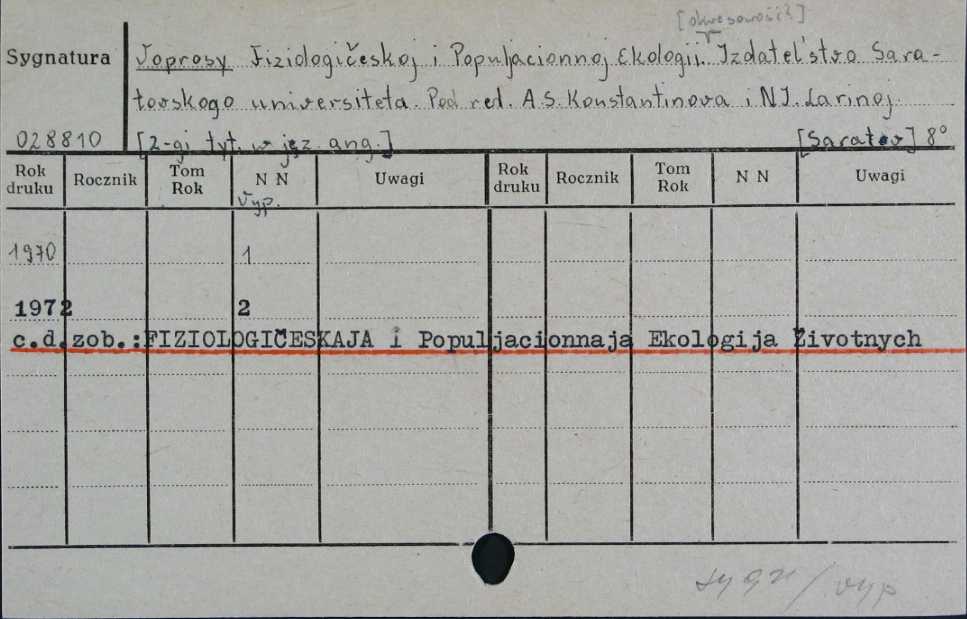 [okresowość?]
Sygnatura
Voprosy Fiziologičeskoj i Populjacionnoj Ekologii. Izdatel'stvo Sara-
tovskogo universiteta. Pod red. A.S. Konstantinova i N.I. Larinoj.
028810 [2-gi tyt. w jęz. ang.] [Saratov] 8°
Rok druku Rocznik Tom Rok N N Uwagi Rok druku Rocznik Tom Rok N N Uwagi
Vyp.
1970 1
1972 2
c.d. zob.: FIZIOLOGIČESKAJA i Populjacionnaja Ekologija Životnych
sygn/vyp